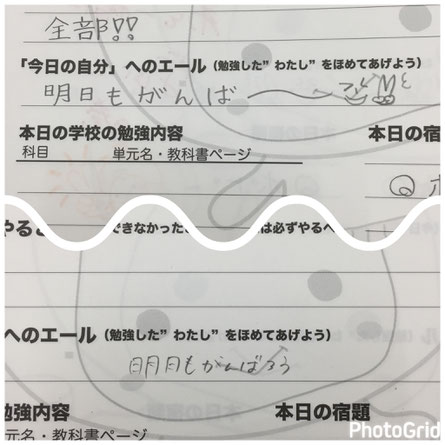 全部!!
「今日の自分」へのエール（勉強した”わたし”をほめてあげよう）
明日もがんば
本日の学校の勉強内容 本日の宿
科目 単元名・教科書ページ
やると できなかった は必ずやるべ
へのエール（勉強した”わたし”をほめてあげよう）
明日もがんばろう
勉強内容 本日の宿題
単元名・教科書ページ
PhotoGrid